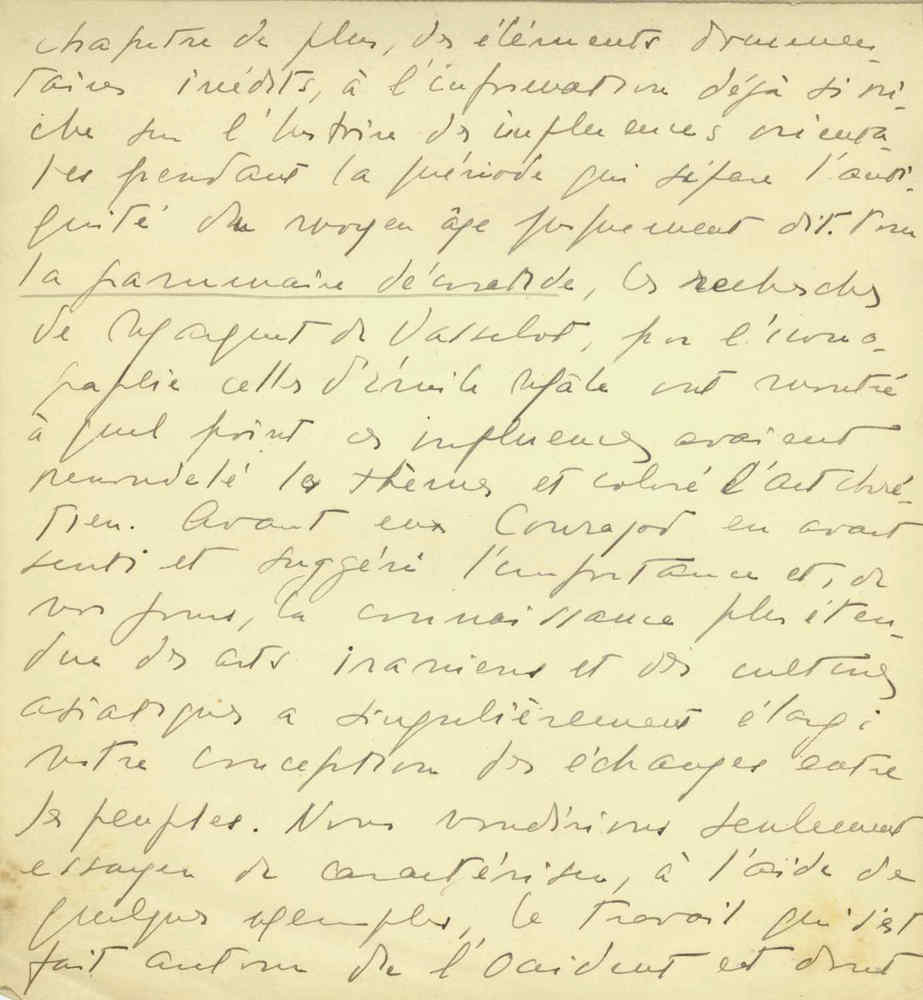 chapitre de plus, des éléments documen-
taires inédits, à l'information déjà si ri-
che sur l'histoire des influences orienta-
les pendant la période qui sépare l'anti-
quité du moyen âge proprement dit. Pour
la grammaire décorative, les recherches
de Marquet de Vasselot, pour l'icono-
graphie celles d'Émile Mâle ont montré
à quel point ces influences avaient
remodelé les thèmes et coloré l'art chré-
tien. Avant eux Courajod en avait
senti et suggéré l'importance et, de
nos jours, la connaissance plus éten-
due des arts iraniens et des cultures
asiatiques a singulièrement élargi
notre conception des échanges entre
les peuples. Nous voudrions seulement
essayer de caractériser, à l'aide de
quelques exemples, le travail qui s'est
fait autour de l'Occident et dont